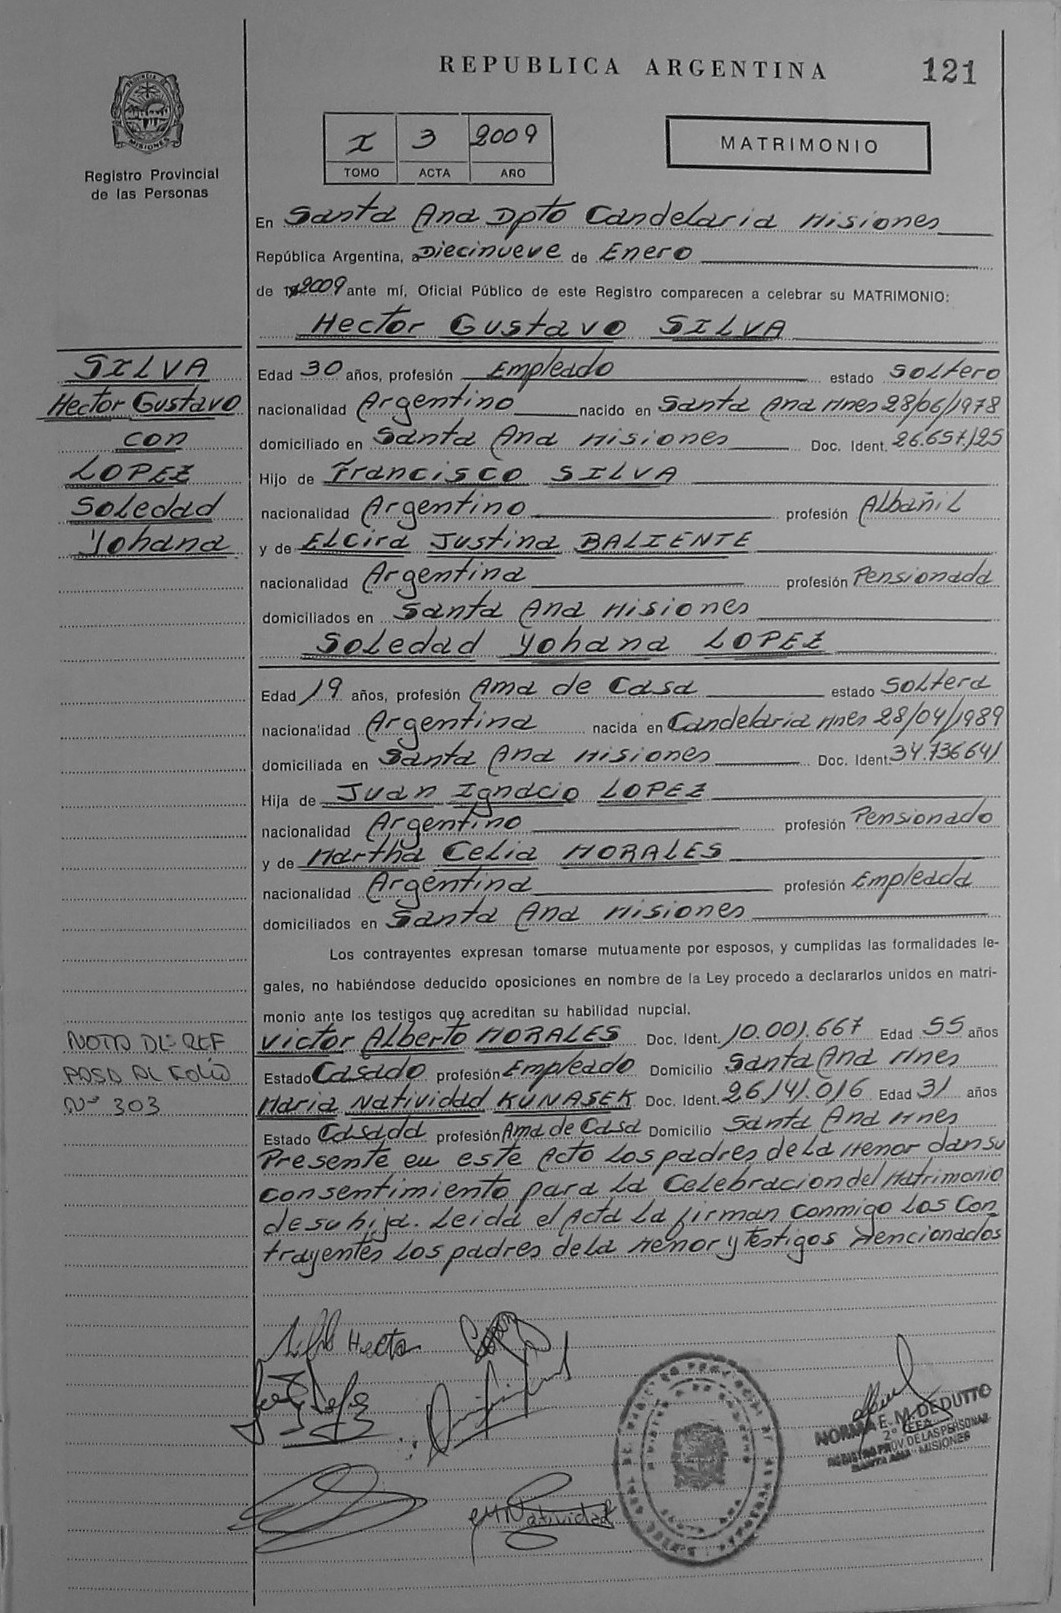 REPUBLICA ARGENTINA
121
PROVINCIA DE
MISIONES
Registro Provincial
de las Personas
I 3 2009
TOMO ACTA AÑO
MATRIMONIO
En Santa Ana Dpto Candelaria Misiones
República Argentina, a Diecinueve de Enero
de 2009 ante mí, Oficial Público de este Registro comparecen a celebrar su MATRIMONIO:
Hector Gustavo SILVA
SILVA
Hector Gustavo
con
LOPEZ
Soledad
Yohana
Edad 30 años, profesión Empleado estado Soltero
nacionalidad Argentino nacido en Santa Ana Mnes 28/06/1978
domiciliado en Santa Ana Misiones Doc. Ident. 26.657.125
Hijo de Francisco SILVA
nacionalidad Argentino profesión Albañil
y de Elcira Justina BALIENTE
nacionalidad Argentina profesión Pensionada
domiciliados en Santa Ana Misiones
Soledad Yohana LOPEZ
Edad 19 años, profesión Ama de Casa estado Soltera
nacionalidad Argentina nacida en Candelaria Mnes 28/04/1989
domiciliada en Santa Ana Misiones Doc. Ident. 34.736.641
Hija de Juan Ignacio LOPEZ
nacionalidad Argentino profesión Pensionado
y de Martha Celia MORALES
nacionalidad Argentina profesión Empleada
domiciliados en Santa Ana Misiones
Los contrayentes expresan tomarse mutuamente por esposos, y cumplidas las formalidades le-
gales, no habiéndose deducido oposiciones en nombre de la Ley procedo a declararlos unidos en matri-
monio ante los testigos que acreditan su habilidad nupcial.
NOTA DE REF
PASA AL FOLIO
Nº 303
Victor Alberto MORALES Doc. Ident. 10.001.667 Edad 55 años
Estado Casado profesión Empleado Domicilio Santa Ana Mnes
Maria Natividad KUNASEK Doc. Ident. 26.141.016 Edad 31 años
Estado Casada profesión Ama de Casa Domicilio Santa Ana Mnes
Presente en este Acto los padres de la Menor dan su
consentimiento para la Celebracion del Matrimonio
de su hija. Leida el Acta la firman conmigo los Con
trayentes los padres de la Menor y Testigos Mencionados
Hector
Natividad
NORMA E. M. DEDUTTO
2º JEFA
REGISTRO PROV. DE LAS PERSONAS
SANTA ANA - MISIONES